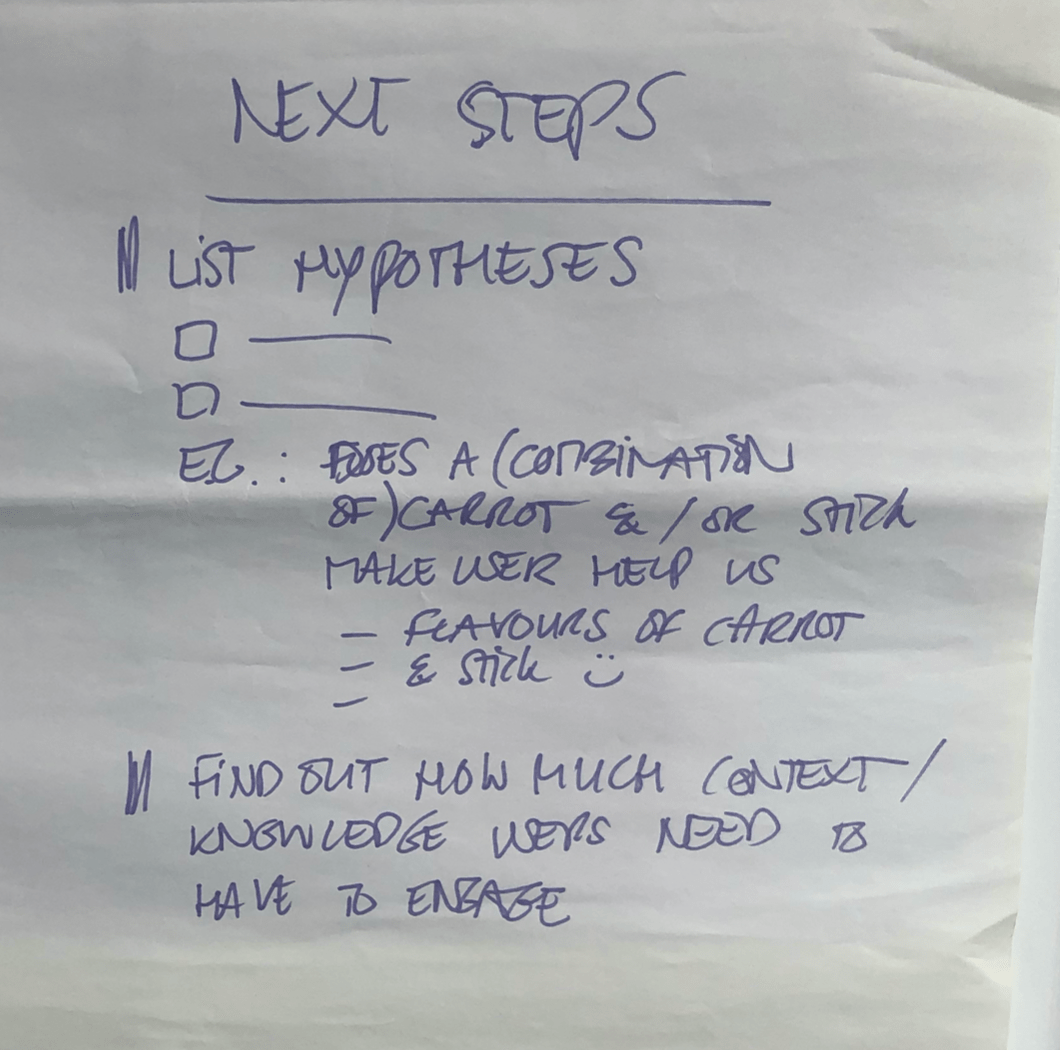 NEXT STEPS
LIST HYPOTHESES
EG.: DOES A (COMBINATION
OF) CARROT & / OR STICK
MAKE USER HELP US
– FLAVOURS OF CARROT
– & STICK :)
–
FIND OUT HOW MUCH CONTEXT /
KNOWLEDGE USERS NEED TO
HAVE TO ENGAGE